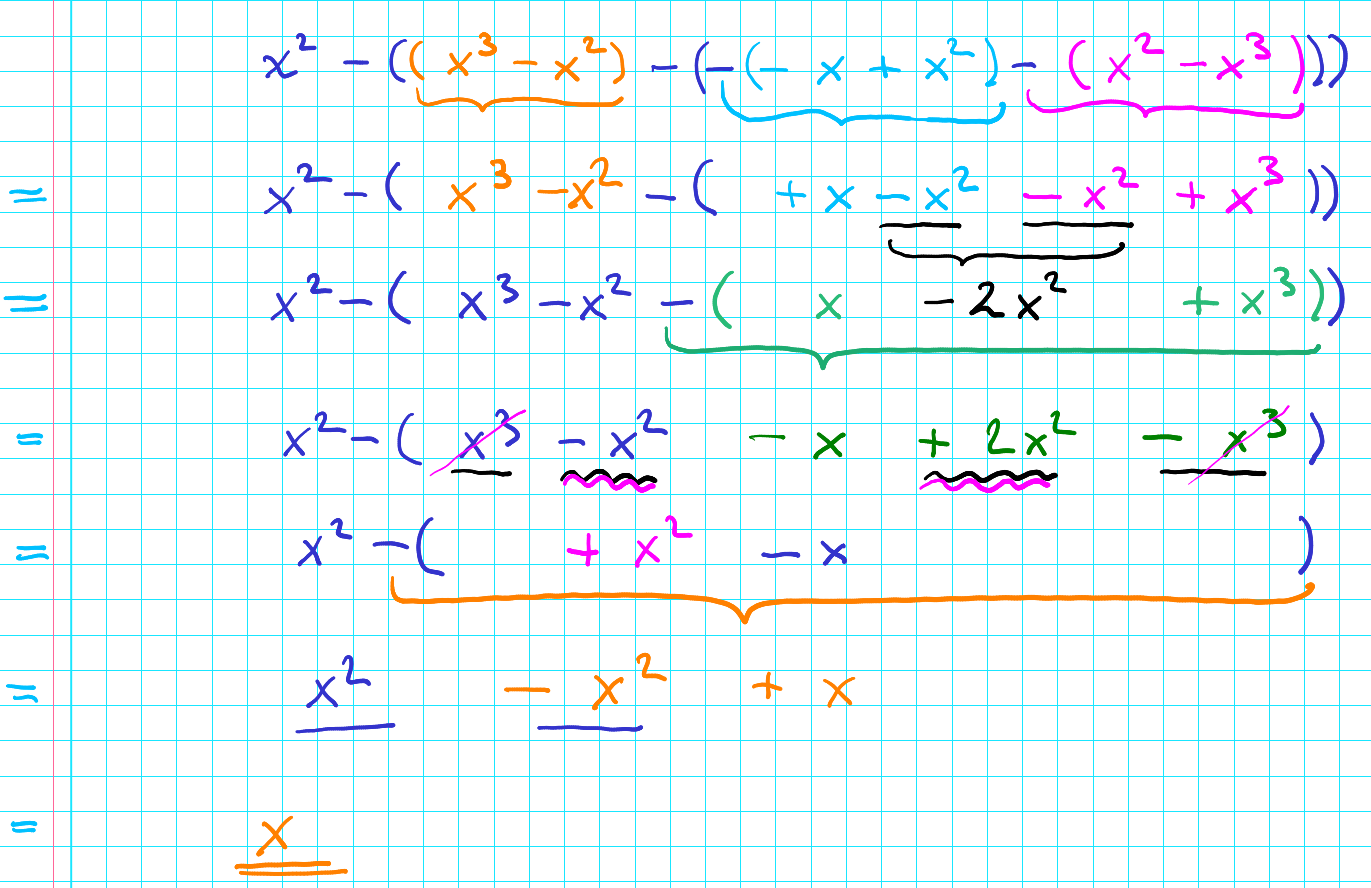 x² − ((x³ − x²) − (−(− x + x²) − (x² − x³)))
= x² − ( x³ − x² − ( + x − x² − x² + x³ ))
= x² − ( x³ − x² − ( x − 2x² + x³ ))
= x² − ( x³ − x² − x + 2x² − x³ )
= x² − ( + x² − x )
= x² − x² + x
= x